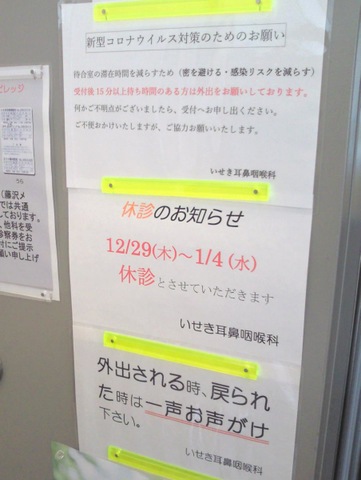 新型コロナウイルス対策のためのお願い
待合室の滞在時間を減らすため（密を避ける・感染リスクを減らす）
受付後15分以上待ち時間のある方は外出をお願いしております。
何かご不明点がございましたら、受付へお申し出ください。
ご不便おかけいたしますが、ご協力お願いいたします。
いせき耳鼻咽喉科
休診のお知らせ
12/29(木)～1/4(水)
休診とさせていただきます
いせき耳鼻咽喉科
外出される時、戻られ
た時は一声お声がけ
下さい。
いせき耳鼻咽喉科
ビレッジ
(藤沢メ
では共通
しております。
、他科を受
診察券をお
付にご提示
願い申し上げ